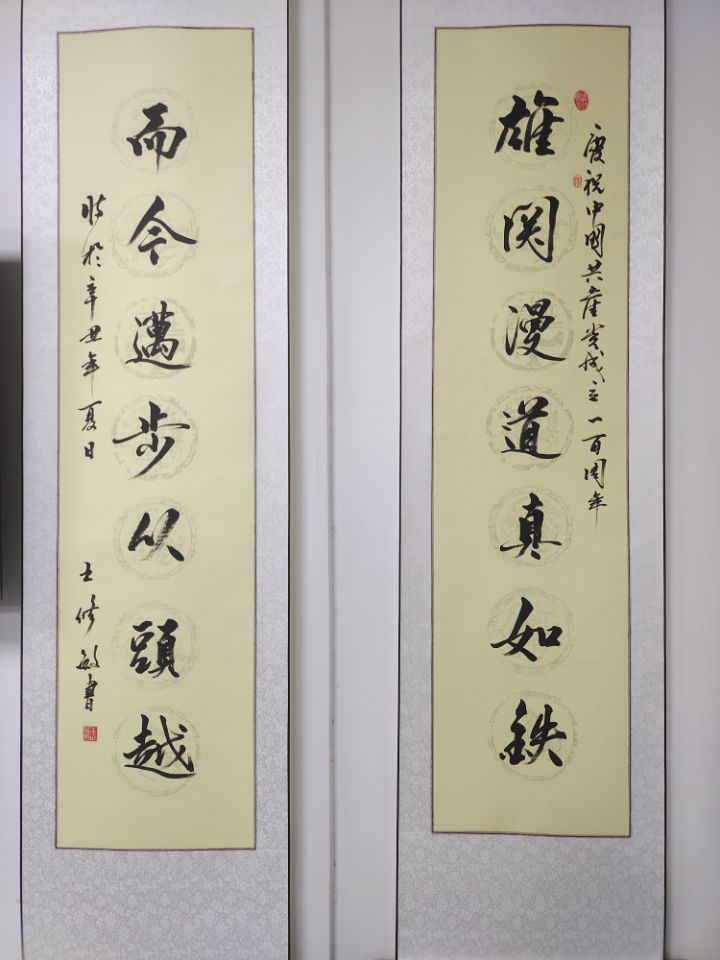 慶祝中国共産党成立一百周年
雄関漫道真如鉄
而今邁步从頭越
時於辛丑年夏日
士修敏書